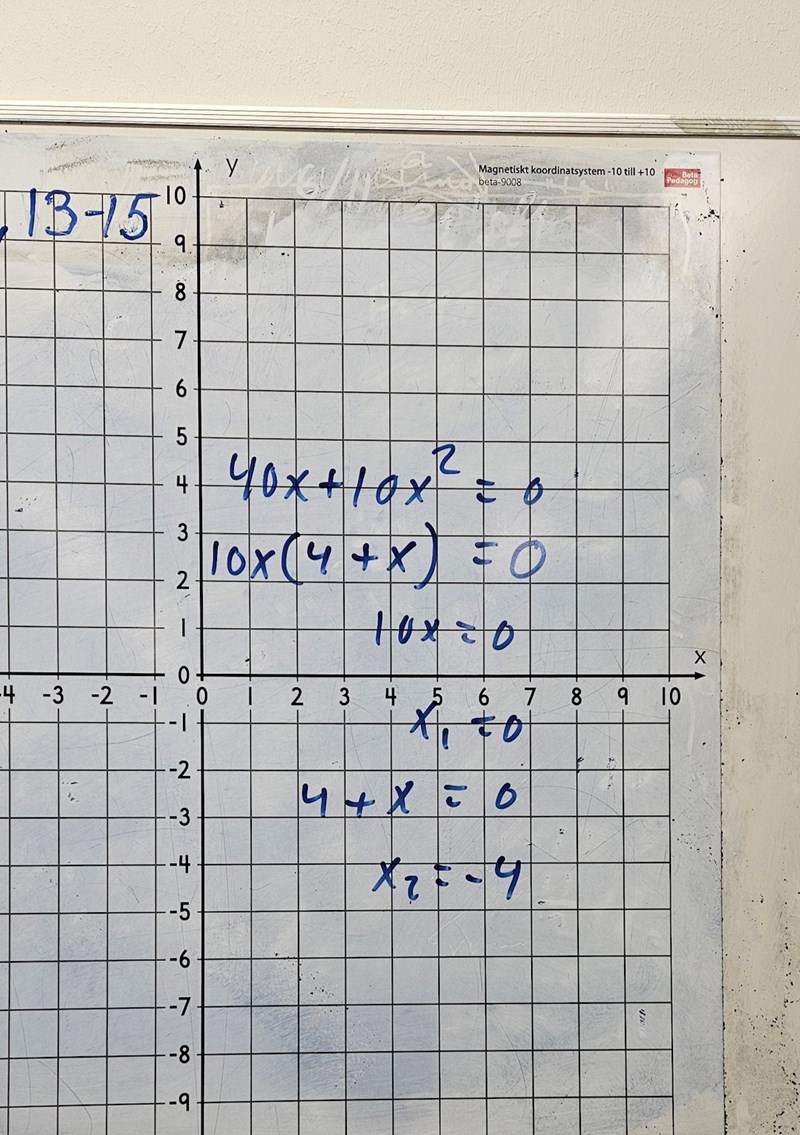 y
Magnetiskt koordinatsystem -10 till +10
beta-9008
Beta
Pedagog
, 13-15
10
9
8
7
6
5
40x+10x² = 0
4
3
10x(4+x) = 0
2
10x=0
1
x
0
-4 -3 -2 -1 0 1 2 3 4 5 6 7 8 9 10
x₁ =0
-1
-2
4+x = 0
-3
-4
x₂=-4
-5
-6
-7
-8
-9